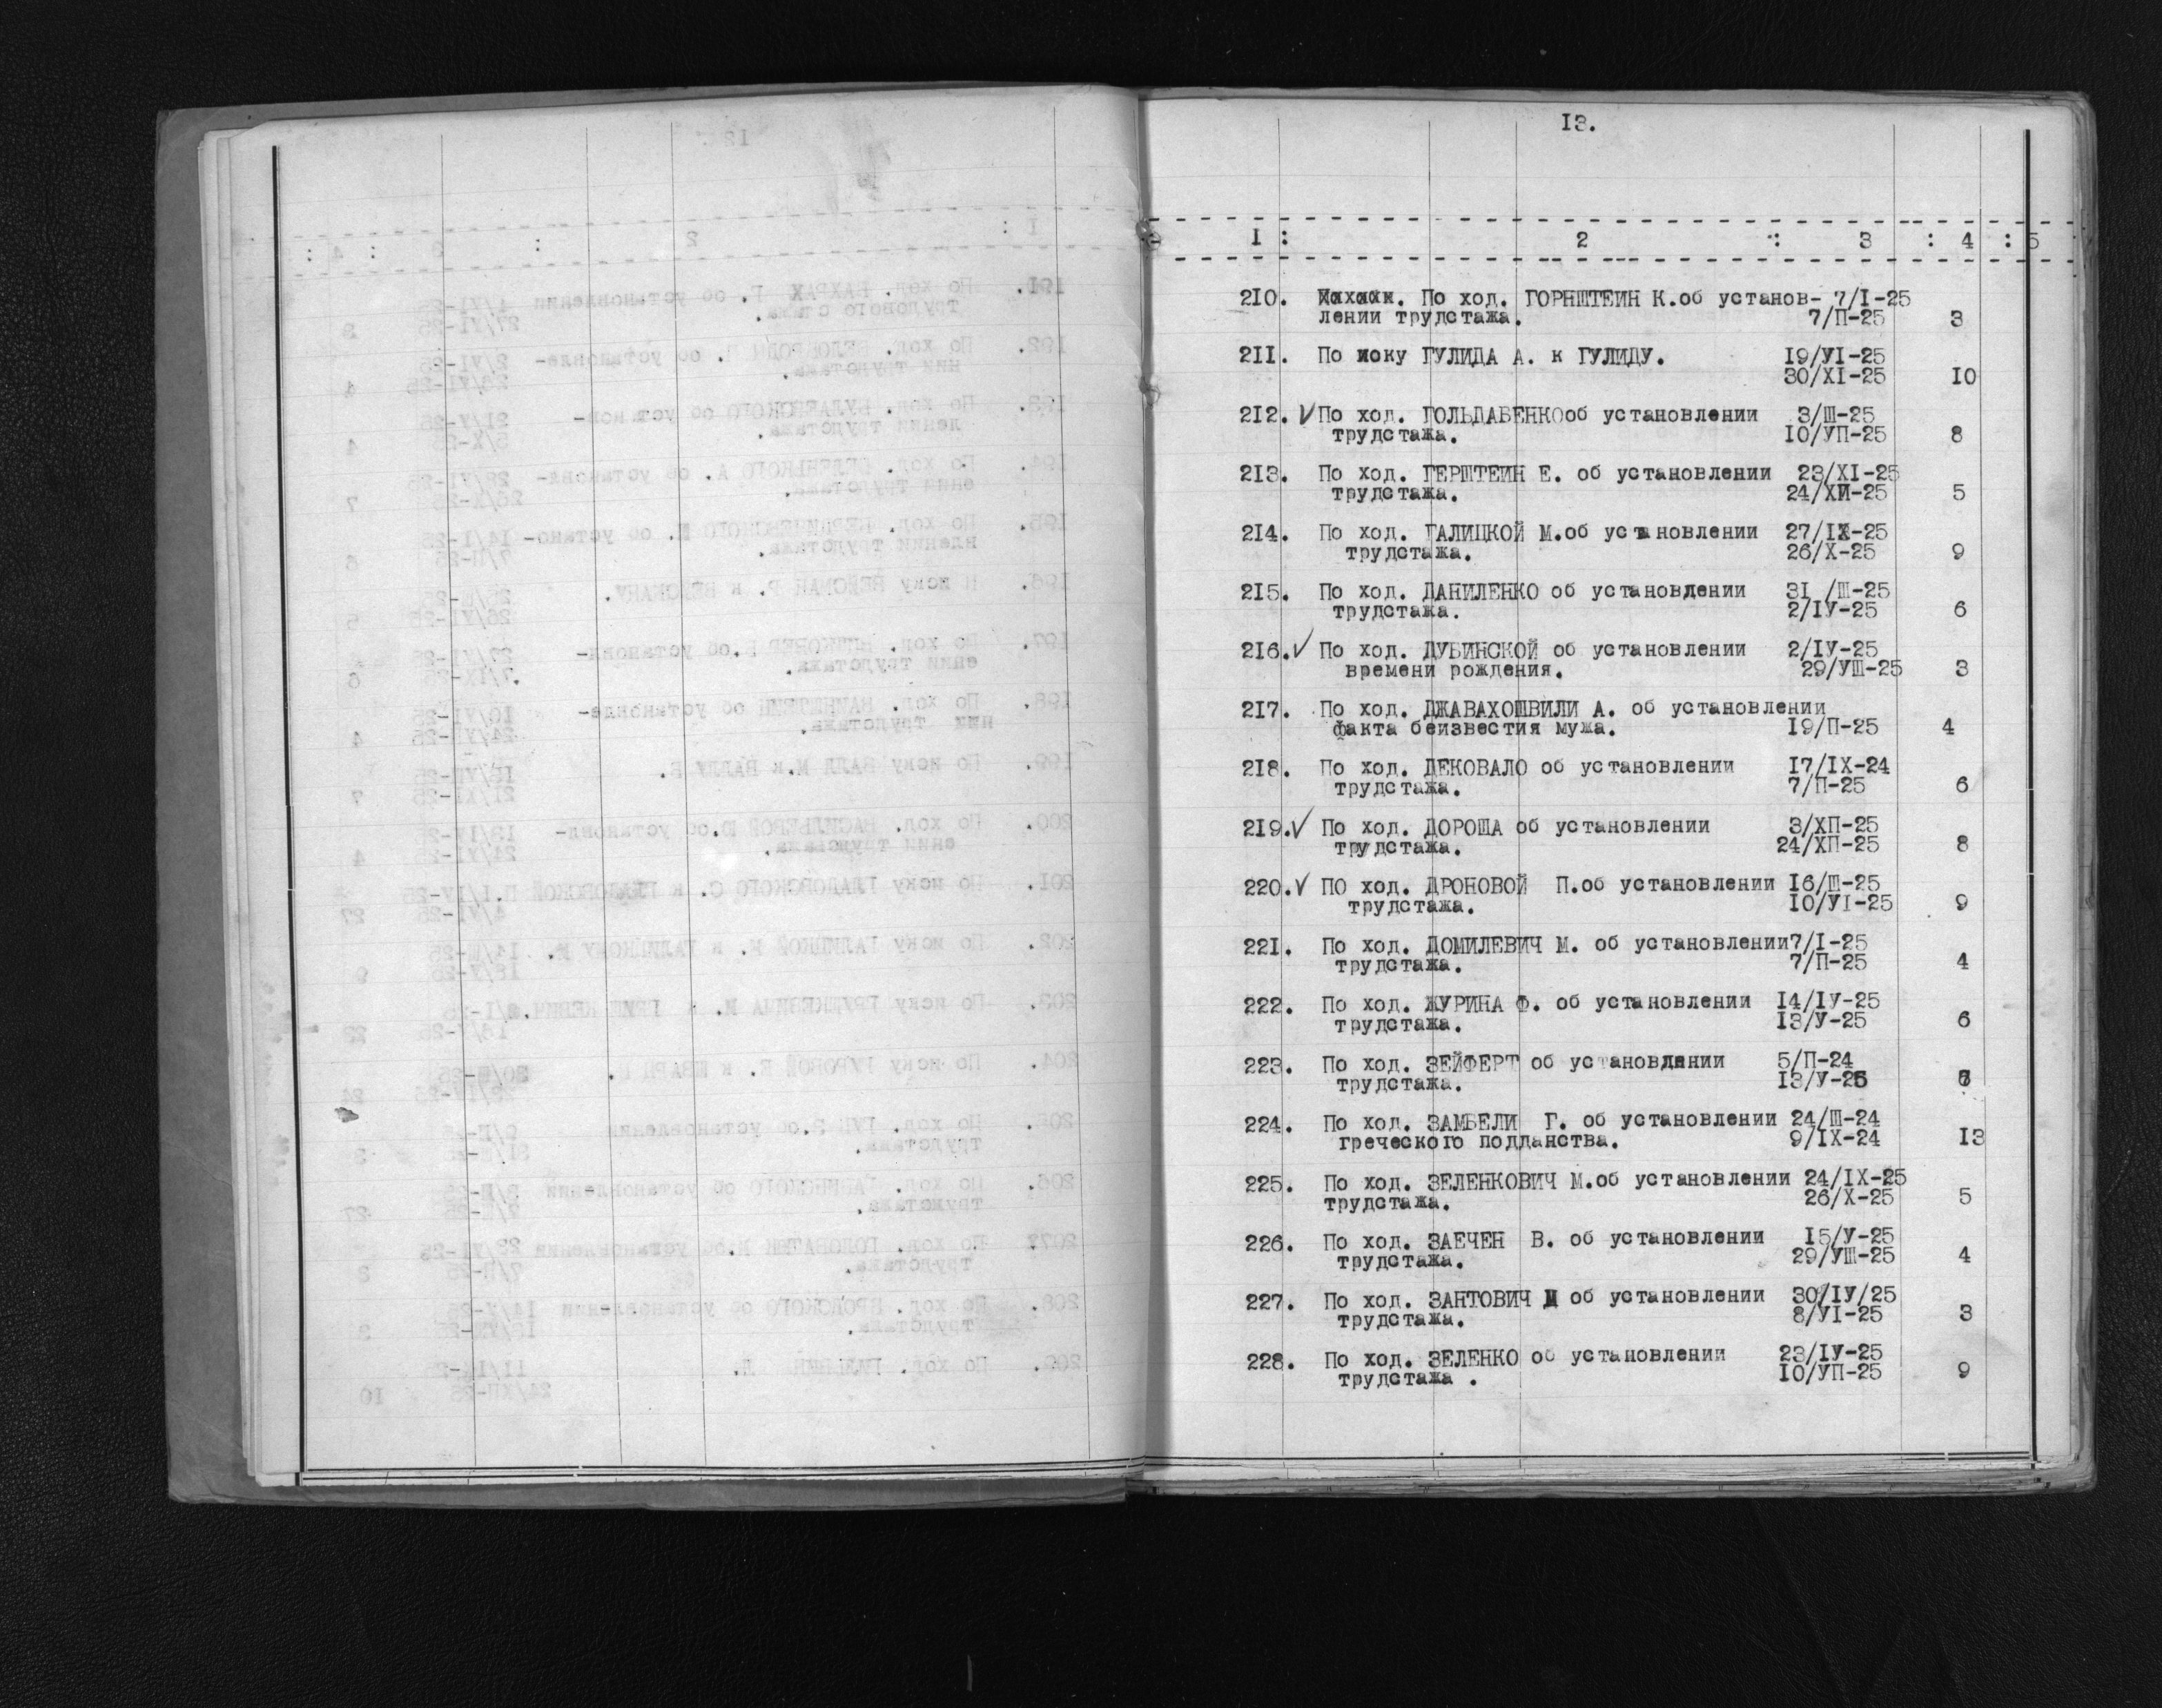 13.
1 : 2 : 3 : 4 : 5
210. По ход. ГОРНШТЕИН К.об установ- 7/I-25
лении трудстажа. 7/П-25 3
211. По иску ГУЛИДА А. к ГУЛИДУ. 19/УI-25
30/XI-25 10
212. √ По ход. ГОЛЬДАБЕНКОоб установлении 3/Ш-25
трудстажа. 10/УП-25 8
213. По ход. ГЕРШТЕИН Е. об установлении 23/XI-25
трудстажа. 24/ХП-25 5
214. По ход. ГАЛИЦКОЙ М.об установлении 27/IX-25
трудстажа. 26/X-25 9
215. По ход. ДАНИЛЕНКО об установлении 31 /Ш-25
трудстажа. 2/IУ-25 6
216.√ По ход. ДУБИНСКОЙ об установлении 2/IУ-25
времени рождения. 29/УШ-25 3
217. По ход. ДЖАВАХОШВИЛИ А. об установлении
факта беизвестия мужа. 19/П-25 4
218. По ход. ДЕКОВАЛО об установлении 17/IX-24
трудстажа. 7/П-25 6
219.√ По ход. ДОРОША об установлении 3/ХП-25
трудстажа. 24/ХП-25 8
220.√ ПО ход. ДРОНОВОЙ П.об установлении 16/Ш-25
трудстажа. 10/УI-25 9
221. По ход. ДОМИЛЕВИЧ М. об установлении7/I-25
трудстажа. 7/П-25 4
222. По ход. ЖУРИНА Ф. об установлении 14/IУ-25
трудстажа. 13/У-25 6
223. По ход. ЗЕЙФЕРТ об установлении 5/П-24
трудстажа. 13/У-25
224. По ход. ЗАМБЕЛИ Г. об установлении 24/Ш-24
греческого подданства. 9/IX-24 13
225. По ход. ЗЕЛЕНКОВИЧ М.об установлении 24/IX-25
трудстажа. 26/X-25 5
226. По ход. ЗАЕЧЕН В. об установлении 15/У-25
трудстажа. 29/УШ-25 4
227. По ход. ЗАНТОВИЧ об установлении 30/IУ/25
трудстажа. 8/УI-25 3
228. По ход. ЗЕЛЕНКО об установлении 23/IУ-25
трудстажа . 10/УП-25 9